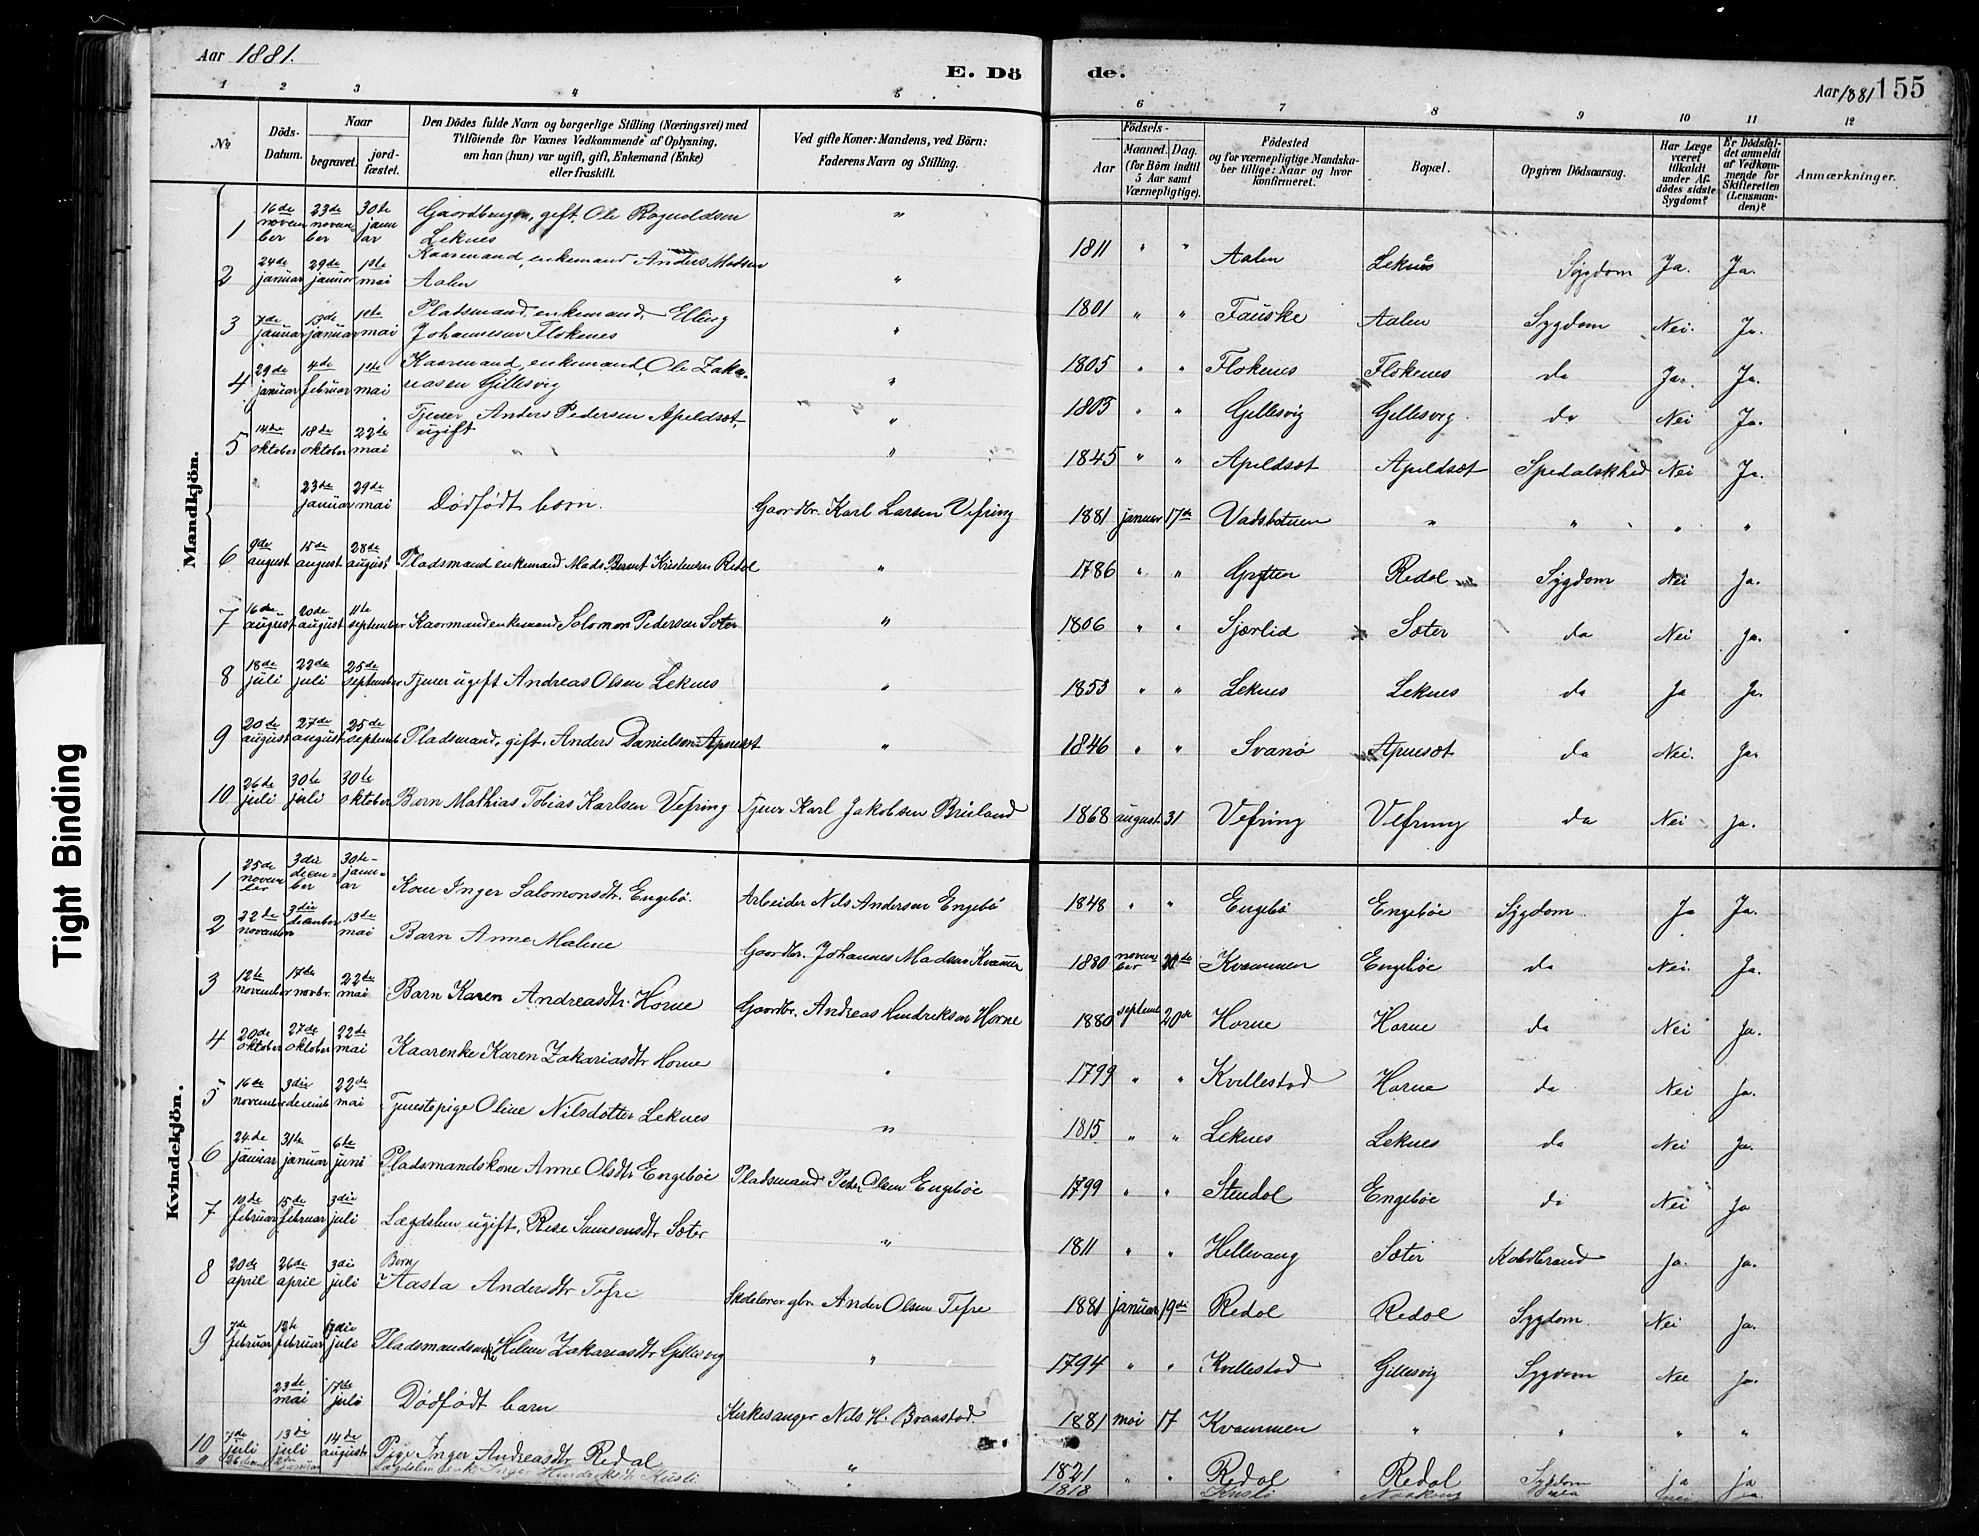 Aar 1881.
E. Dö
de.
Aar 1881 155
1 2 3 4 5 6 7 8 9 10 11 12
№
Döds-Datum.
Naar
begravet. jord-fæstet.
Den Dödes fulde Navn og borgerlige Stilling (Næringsvei) med
Tilföiende for Voxnes Vedkommende af Oplysning,
om han (hun) var ugift, gift, Enkemand (Enke)
eller fraskilt.
Ved gifte Koner: Mandens, ved Börn:
Faderens Navn og Stilling.
Födsels-
Aar Maaned. Dag.
(for Börn indtil
5 Aar samt
Værnepligtige).
Födested
og for værnepligtige Mandska-
ber tillige: Naar og hvor
konfirmeret.
Bopæl.
Opgiven Dödsaarsag.
Har Læge
været
tilkaldt
under Af-
dödes sidste
Sygdom?
Er Dödsfal-
det anmeldt
af Vedkom-
mende for
Skifteretten
(Lensman-
den)?
Anmærkninger.
Mandkjön.
1 16de november 23de november 30te januar Gaardbruger, gift, Ole Rognoldsen Leknes " 1811 " " Aalen Leknes Sygdom Ja. Ja.
2 24de januar 29de januar 1ste mai Kaarmand, enkemand Anders Madsen Aalen " 1801 " " Fauske Aalen Sygdom Nei. Ja.
3 7de januar 13de januar 1ste mai Pladsmand, enkemand, Elling Johannesen Flokenes " 1805 " " Flokenes Flokenes do Ja. Ja.
4 29de januar 4de februar 1ste mai Kaarmand, enkemand, Ole Zakariasen Gillesvig " 1803 " " Gillesvig Gillesvig do Nei Ja.
5 14de oktober 18de oktober 22de mai Tjener Anders Pedersen Apeldsæt, ugift " 1845 " " Apeldsæt Apeldsæt Spedalskhed Nei Ja.
23de januar 29de mai Dødfødt barn. Gaardbr. Karl Larsen Vefring 1881 januar 17de Vadsbotnen " " " "
6 9de august 15de august 28de august Pladsmand enkemand Mads Berent Kristensen Redal " 1786 " " Grytten Redal Sygdom Nei Ja.
7 16de august 20de august 11te september Kaarmand enkemand Salomon Pedersen Sæter " 1806 " " Sjærlid Sæter do Nei Ja.
8 18de juli 22de juli 25de september Tjener ugift Andreas Olsen Leknes " 1853 " " Leknes Leknes do Ja Ja.
9 20de august 27de august 25de septemb Pladsmand, gift, Anders Danielsen Apnesæt " 1846 " " Svanø Apnesæt do Nei. Ja.
10 26de juli 30te juli 30te oktober Barn Mathias Tobias Karlsen Vefring Tjener Karl Jakobsen Bruland 1868 august 31 Vefring Vefring do Nei Ja.
Kvindekjön.
1 25de november 3die december 30te januar Kone Inger Salomonsdtr. Engebø. Arbeider Nils Andersen Engebø 1848 " " Engebø Engebøe Sygdom Ja Ja.
2 22de november 3die december 13de mai Barn Anne Malene Gaardbr. Johannes Madsen Kvammen 1880 november 20de Kvammen Engebøe do Nei. Ja.
3 12te november 17de novbr. 22de mai Barn Karen Andreasdtr. Horne Gaardbr. Andreas Hendriksen Horne 1880 septembr 20de Horne Horne do Nei Ja.
4 20de oktober 27de oktober 22de mai Kaarenke Karen Zakariasdtr Horne " 1799 " " Kvellestad Horne do Nei Ja.
5 16de november 3die decemb 22de mai Tjenestepige Oline Nilsdotter Leknes " 1815 " " Leknes Leknes do Nei Ja.
6 24de januar 31te januar 6te juni Pladsmandskone Anne Olsdtr Engebøe Pladsmand Peder Olsen Engebøe 1799 " " Stendal Engebøe do Nei Ja
7 10de februar 15de februar 3die juli Lægdslem ugift, Rise Samsonsdtr. Sæter " 1811 " " Hellevang Sæter Koldbrand Ja. Ja.
8 20de april 26de april 3die juli Barn Aasta Andersdtr Tefre Skolelærer gbr. Anders Olsen Tefre 1881 januar 19de Redal Redal Sygdom. Nei Ja.
9 7de februar 12te februar juli Pladsmandsenke Helene Zakariasdtr Gillesvig " 1794 " " Kvellestad Gillesvig Sygdom Nei Ja.
23de mai 17de juli Dødfødt barn Kirkesanger Nils H. Braastad. 1881 mai 17 Kvammen " " " "
10 7de juli 13de juli 14de august Pige Inger Andreasdtr Redal " 1821 " " Redal Redal Sygdom ja ja
januar Lægdslem Inger 1818 nei
Tight Binding